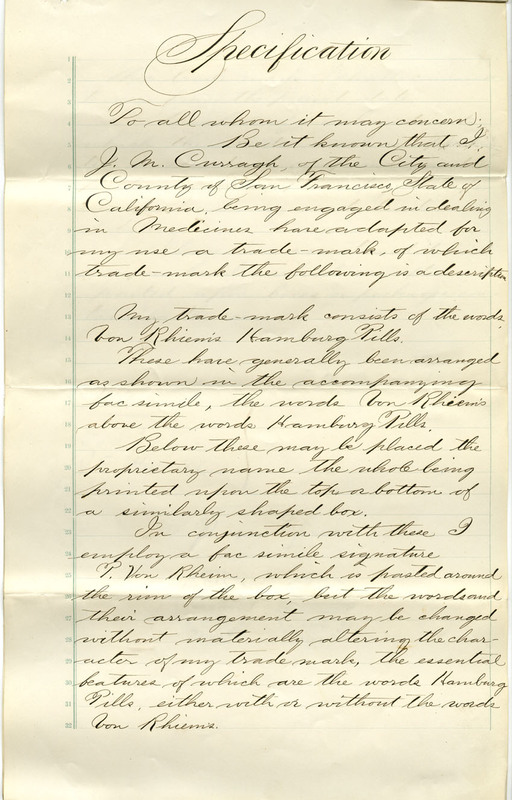 Specification
To all whom it may concern:
Be it known that I,
J. M. Curragh, of the City and
County of San Francisco, State of
California, being engaged in dealing
in Medicines have adapted for
my use a trade-mark, of which
trade-mark the following is a description
My trade-mark consists of the words
Von Rhiem's Hamburg Pills.
These have generally been arranged
as shown in the accompanying
fac simile, the words Von Rhiem's
above the words Hamburg Pills.
Below these may be placed the
proprietary name the whole being
printed upon the top or bottom of
a similarly shaped box.
In conjunction with these I
employ a fac simile signature
T. Von Rheim, which is pasted around
the rim of the box, but the words and
their arrangement may be changed
without materially altering the char-
acter of my trade mark, the essential
features of which are the words Hamburg
Pills, either with or without the words
Von Rhiems.